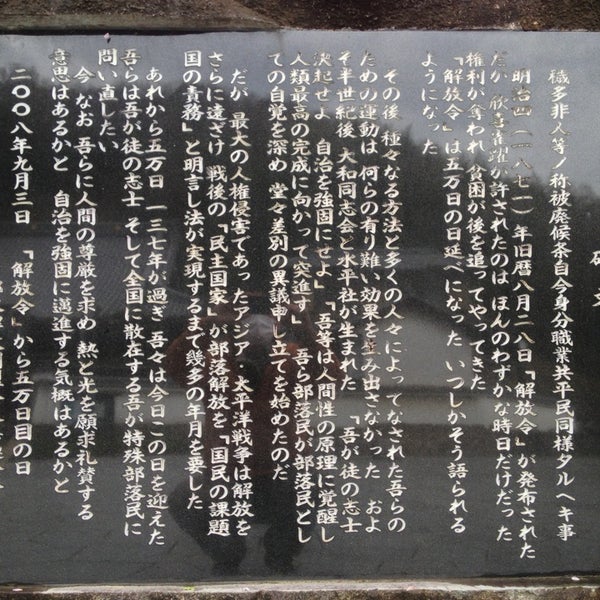 碑文
穢多非人等ノ称被廃候条自今身分職業共平民同様タルヘキ事
明治四(一八七一)年旧暦八月二八日「解放令」が発布された
だが 欣喜雀躍が許されたのは ほんのわずかな時日だけだった
権利が奪われ 貧困が後を追ってやってきた
「解放令」は五万日の日延べになった いつしかそう語られる
ようになった
その後 種々なる方法と多くの人々によってなされた吾らの
ための運動は 何らの有り難い効果をも産み出さなかった およ
そ半世紀後 大和同志会と水平社が生まれた 「吾が徒の志士
決起せよ 自治を強固にせよ」「吾等は人間性の原理に覚醒し
人類最高の完成に向かって突進す」 吾ら部落民が部落民とし
ての自覚を深め 堂々差別の異議申し立てを始めたのだ
だが 最大の人権侵害であったアジア・太平洋戦争は解放を
さらに遠ざけ 戦後の「民主国家」が部落解放を「国民の課題
国の責務」と明言し法が実現するまで幾多の年月を要した
あれから五万日 一三七年が過ぎ 吾々は今日この日を迎えた
吾らは吾が徒の志士 そして全国に散在する吾が特殊部落民に
問い直したい
今 なお 吾らに人間の尊厳を求め 熱と光を願求礼賛する
意思はあるかと 自治を強固に邁進する気概はあるかと
二〇〇八年九月三日 「解放令」から五万日目の日